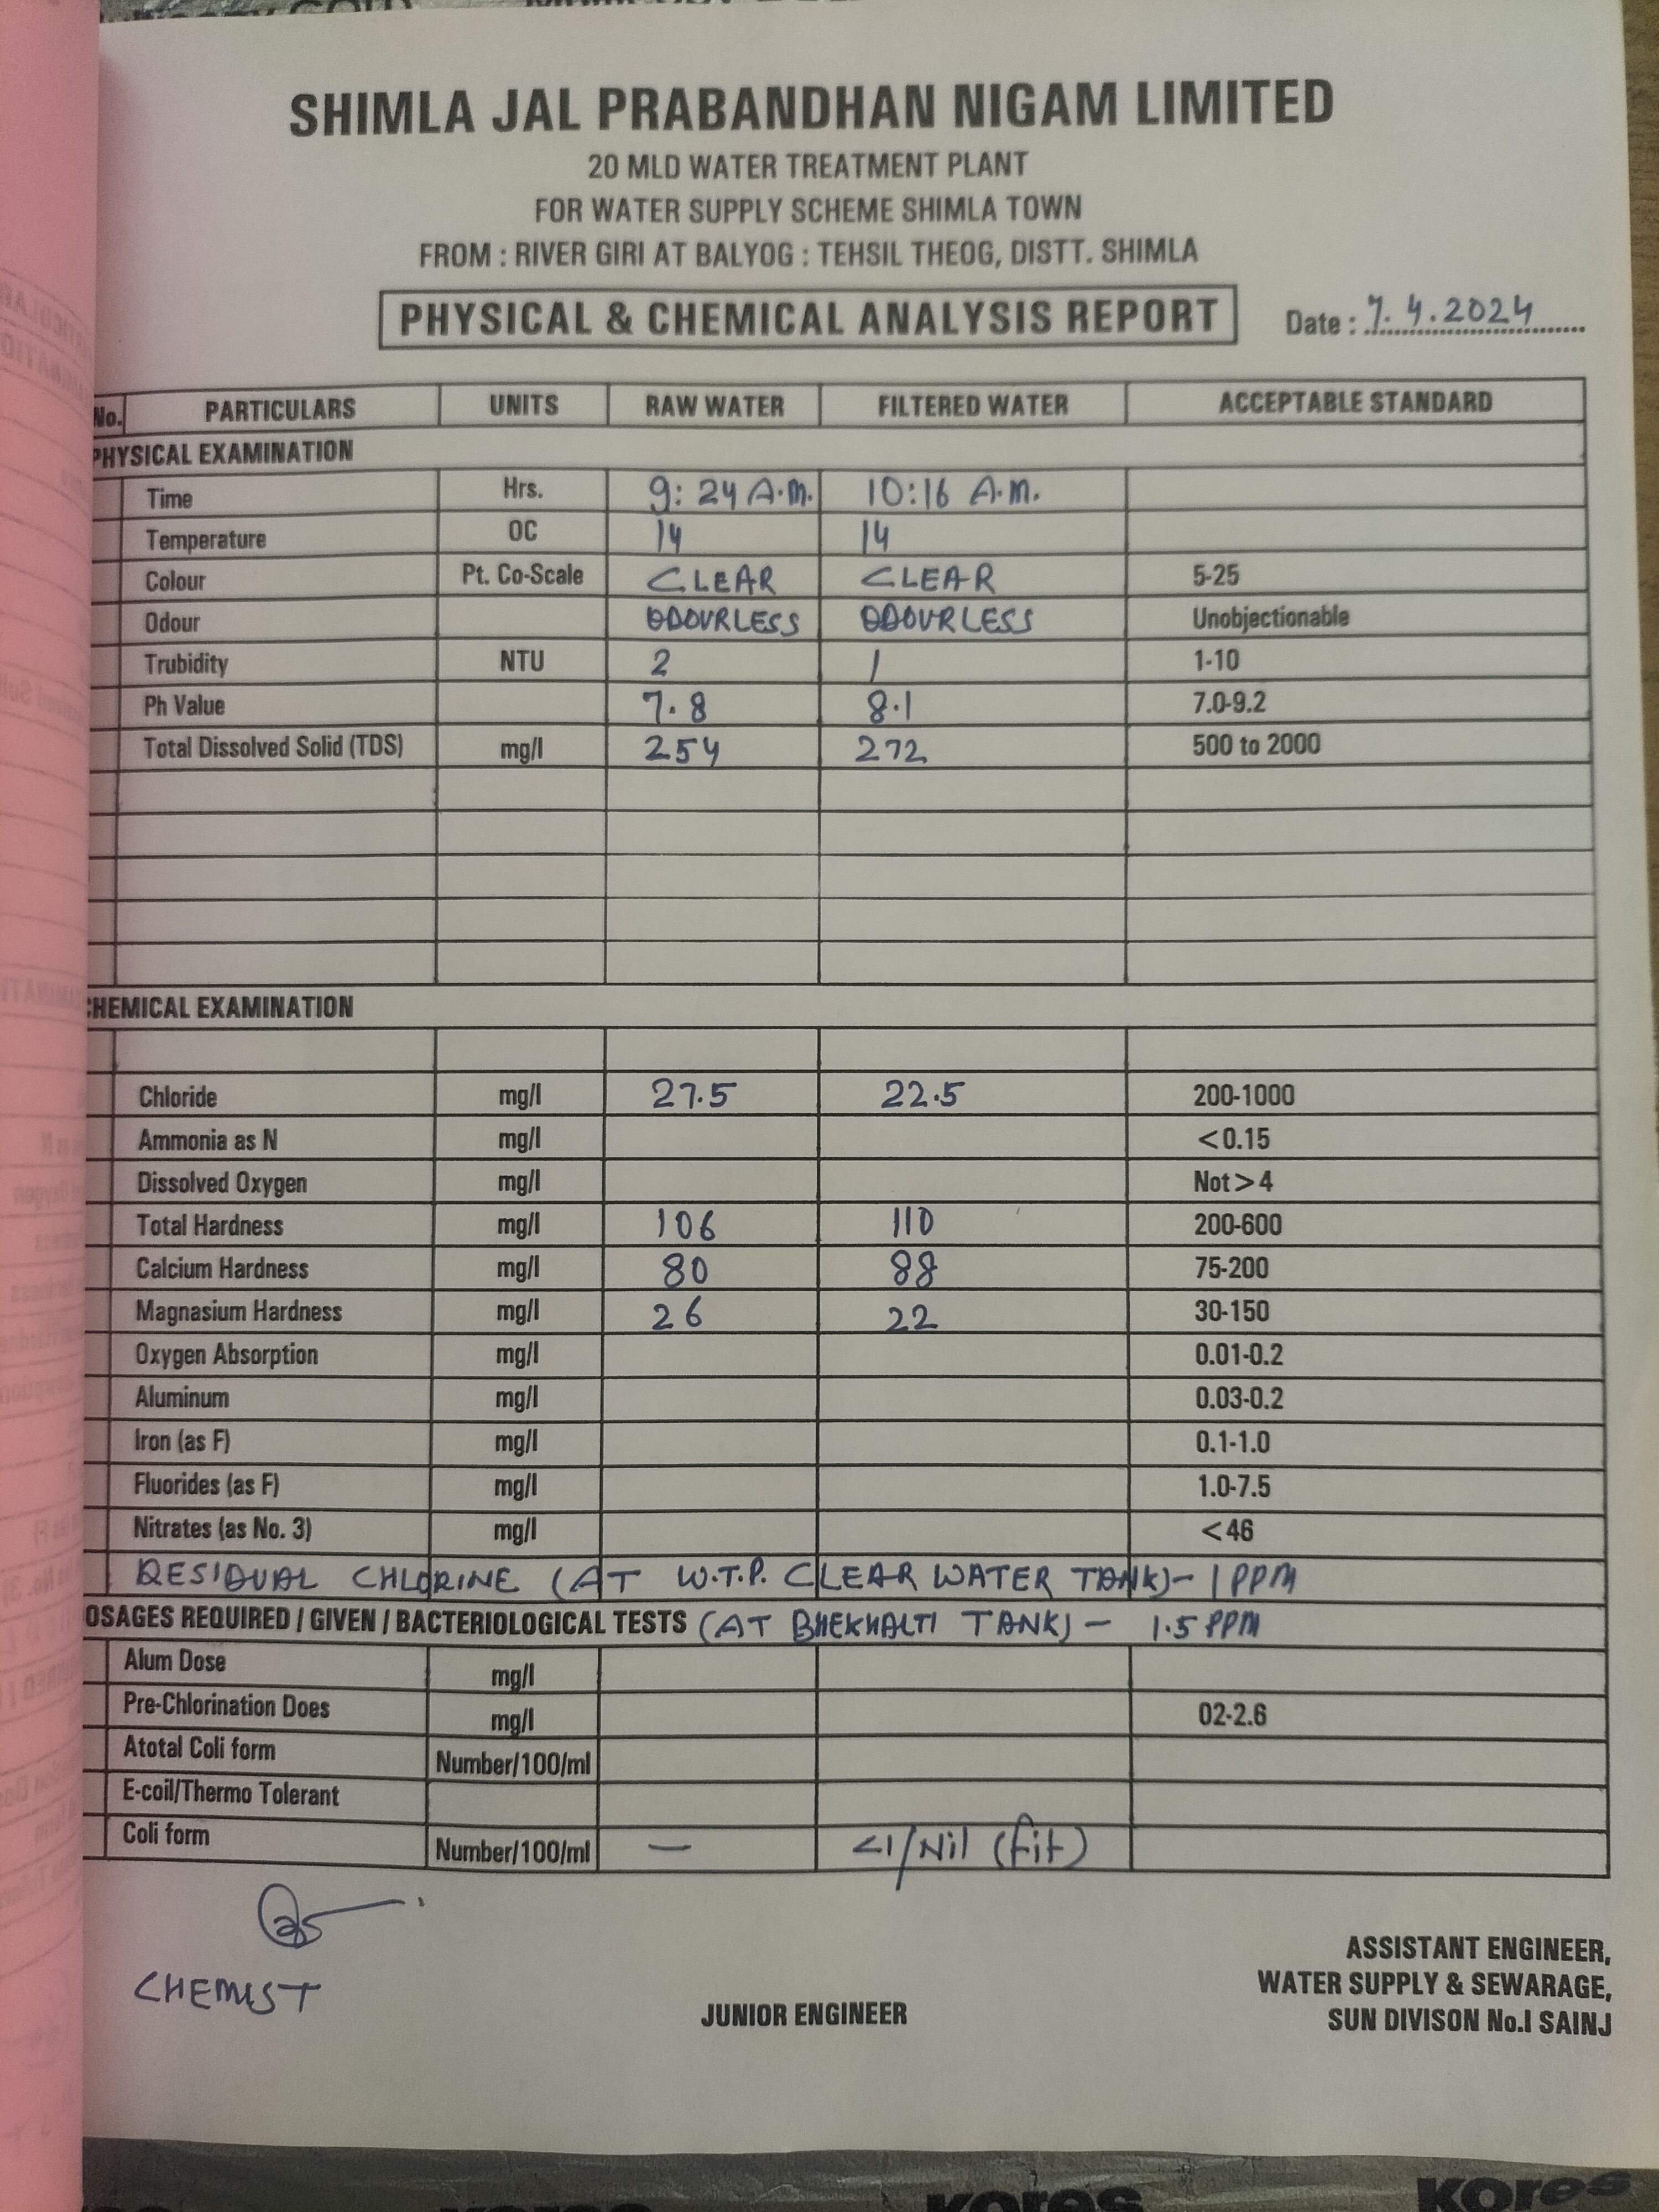 SHIMLA JAL PRABANDHAN NIGAM LIMITED
20 MLD WATER TREATMENT PLANT
FOR WATER SUPPLY SCHEME SHIMLA TOWN
FROM : RIVER GIRI AT BALYOG : TEHSIL THEOG, DISTT. SHIMLA
PHYSICAL & CHEMICAL ANALYSIS REPORT Date : 7.4.2024
No. PARTICULARS UNITS RAW WATER FILTERED WATER ACCEPTABLE STANDARD
PHYSICAL EXAMINATION
Time Hrs. 9:24 A.M. 10:16 A.M.
Temperature OC 14 14
Colour Pt. Co-Scale CLEAR CLEAR 5-25
Odour ODOURLESS ODOURLESS Unobjectionable
Trubidity NTU 2 1 1-10
Ph Value 7.8 8.1 7.0-9.2
Total Dissolved Solid (TDS) mg/l 254 272 500 to 2000
CHEMICAL EXAMINATION
Chloride mg/l 27.5 22.5 200-1000
Ammonia as N mg/l <0.15
Dissolved Oxygen mg/l Not > 4
Total Hardness mg/l 106 110 200-600
Calcium Hardness mg/l 80 88 75-200
Magnasium Hardness mg/l 26 22 30-150
Oxygen Absorption mg/l 0.01-0.2
Aluminum mg/l 0.03-0.2
Iron (as F) mg/l 0.1-1.0
Fluorides (as F) mg/l 1.0-7.5
Nitrates (as No. 3) mg/l <46
RESIDUAL CHLORINE (AT W.T.P. CLEAR WATER TANK)- 1 PPM
OSAGES REQUIRED / GIVEN / BACTERIOLOGICAL TESTS (AT BHEKHALTI TANK) - 1.5 PPM
Alum Dose mg/l
Pre-Chlorination Does mg/l 02-2.6
Atotal Coli form Number/100/ml
E-coil/Thermo Tolerant
Coli form Number/100/ml — <1/Nil (fit)
CHEMIST
JUNIOR ENGINEER
ASSISTANT ENGINEER,
WATER SUPPLY & SEWARAGE,
SUN DIVISON No.I SAINJ
kores kores